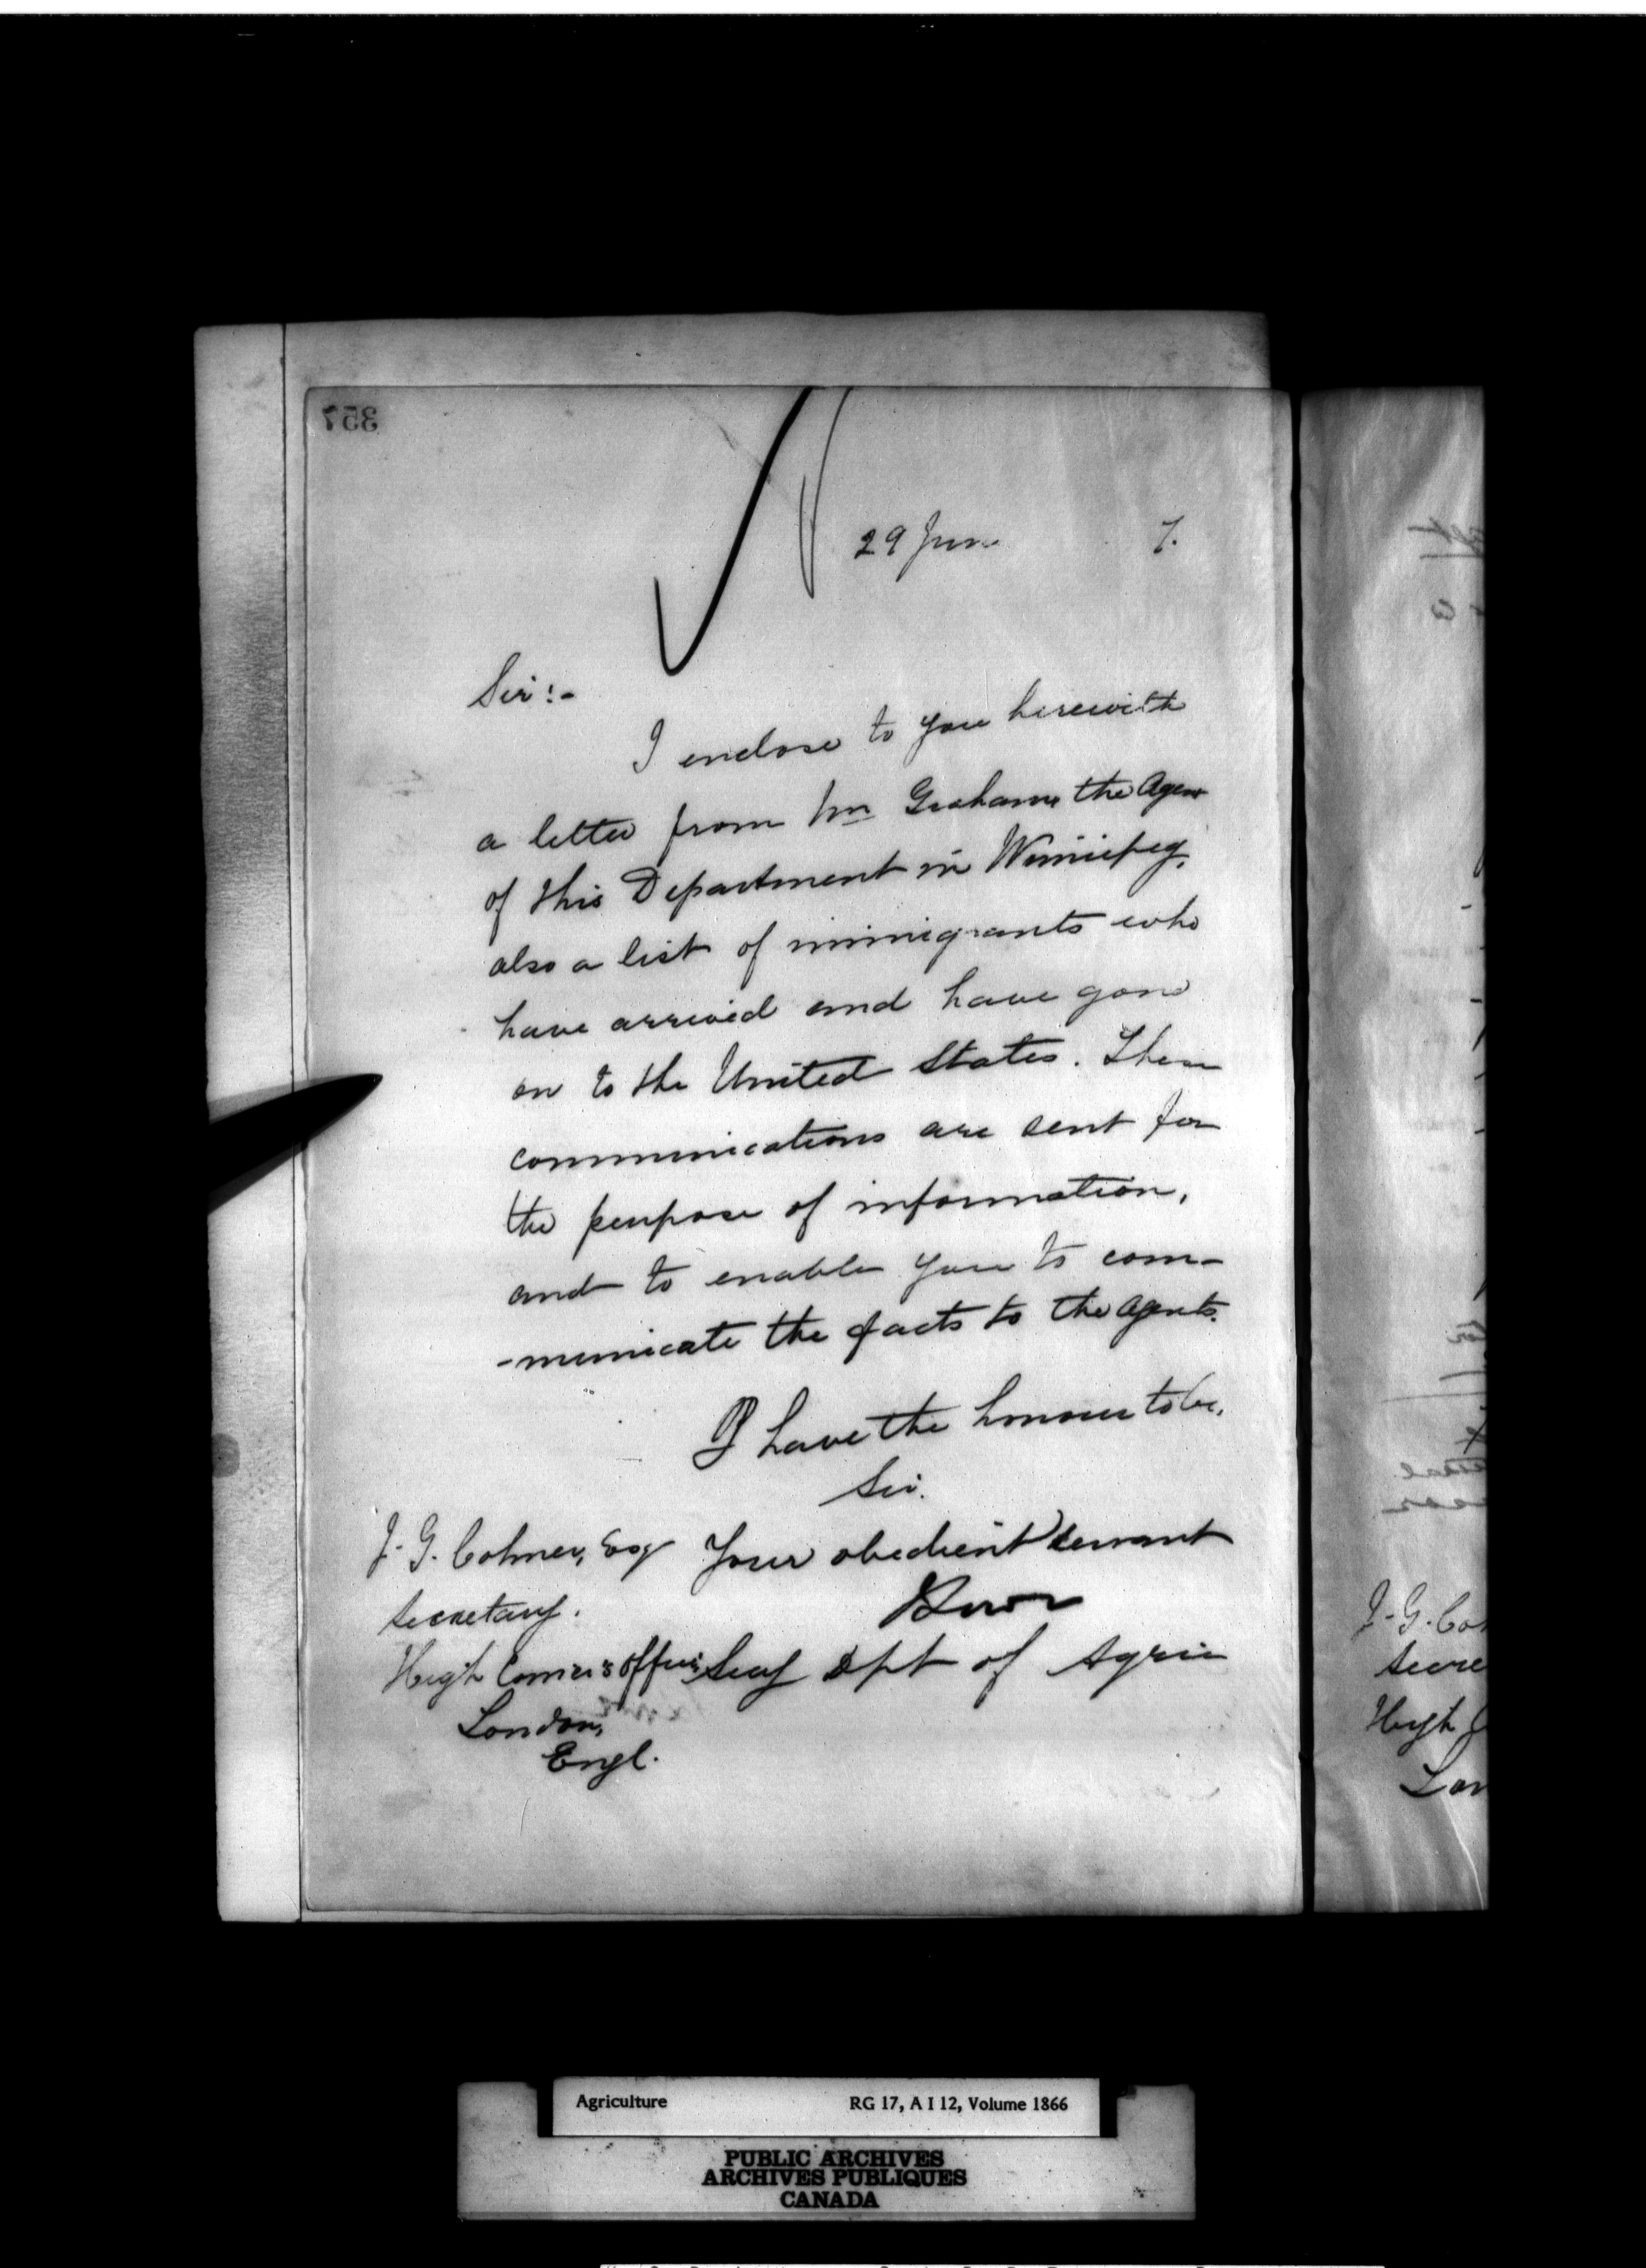 357
29 June 7.
Sir:-
I enclose to you herewith
a letter from Mr Grahame the Agent
of this Department in Winnipeg,
also a list of immigrants who
have arrived and have gone
on to the United States. These
communications are sent for
the purpose of information,
and to enable you to com-
-municate the facts to the Agents.
I have the honour to be,
Sir.
Your obedient servant
J. G. Colmer, Esq
Secretary.
High Comer's Office
Secy Dpt of Agric
London,
Engl.
J-G. Col
Secre
High
Lon
Agriculture RG 17, A I 12, Volume 1866
PUBLIC ARCHIVES
ARCHIVES PUBLIQUES
CANADA